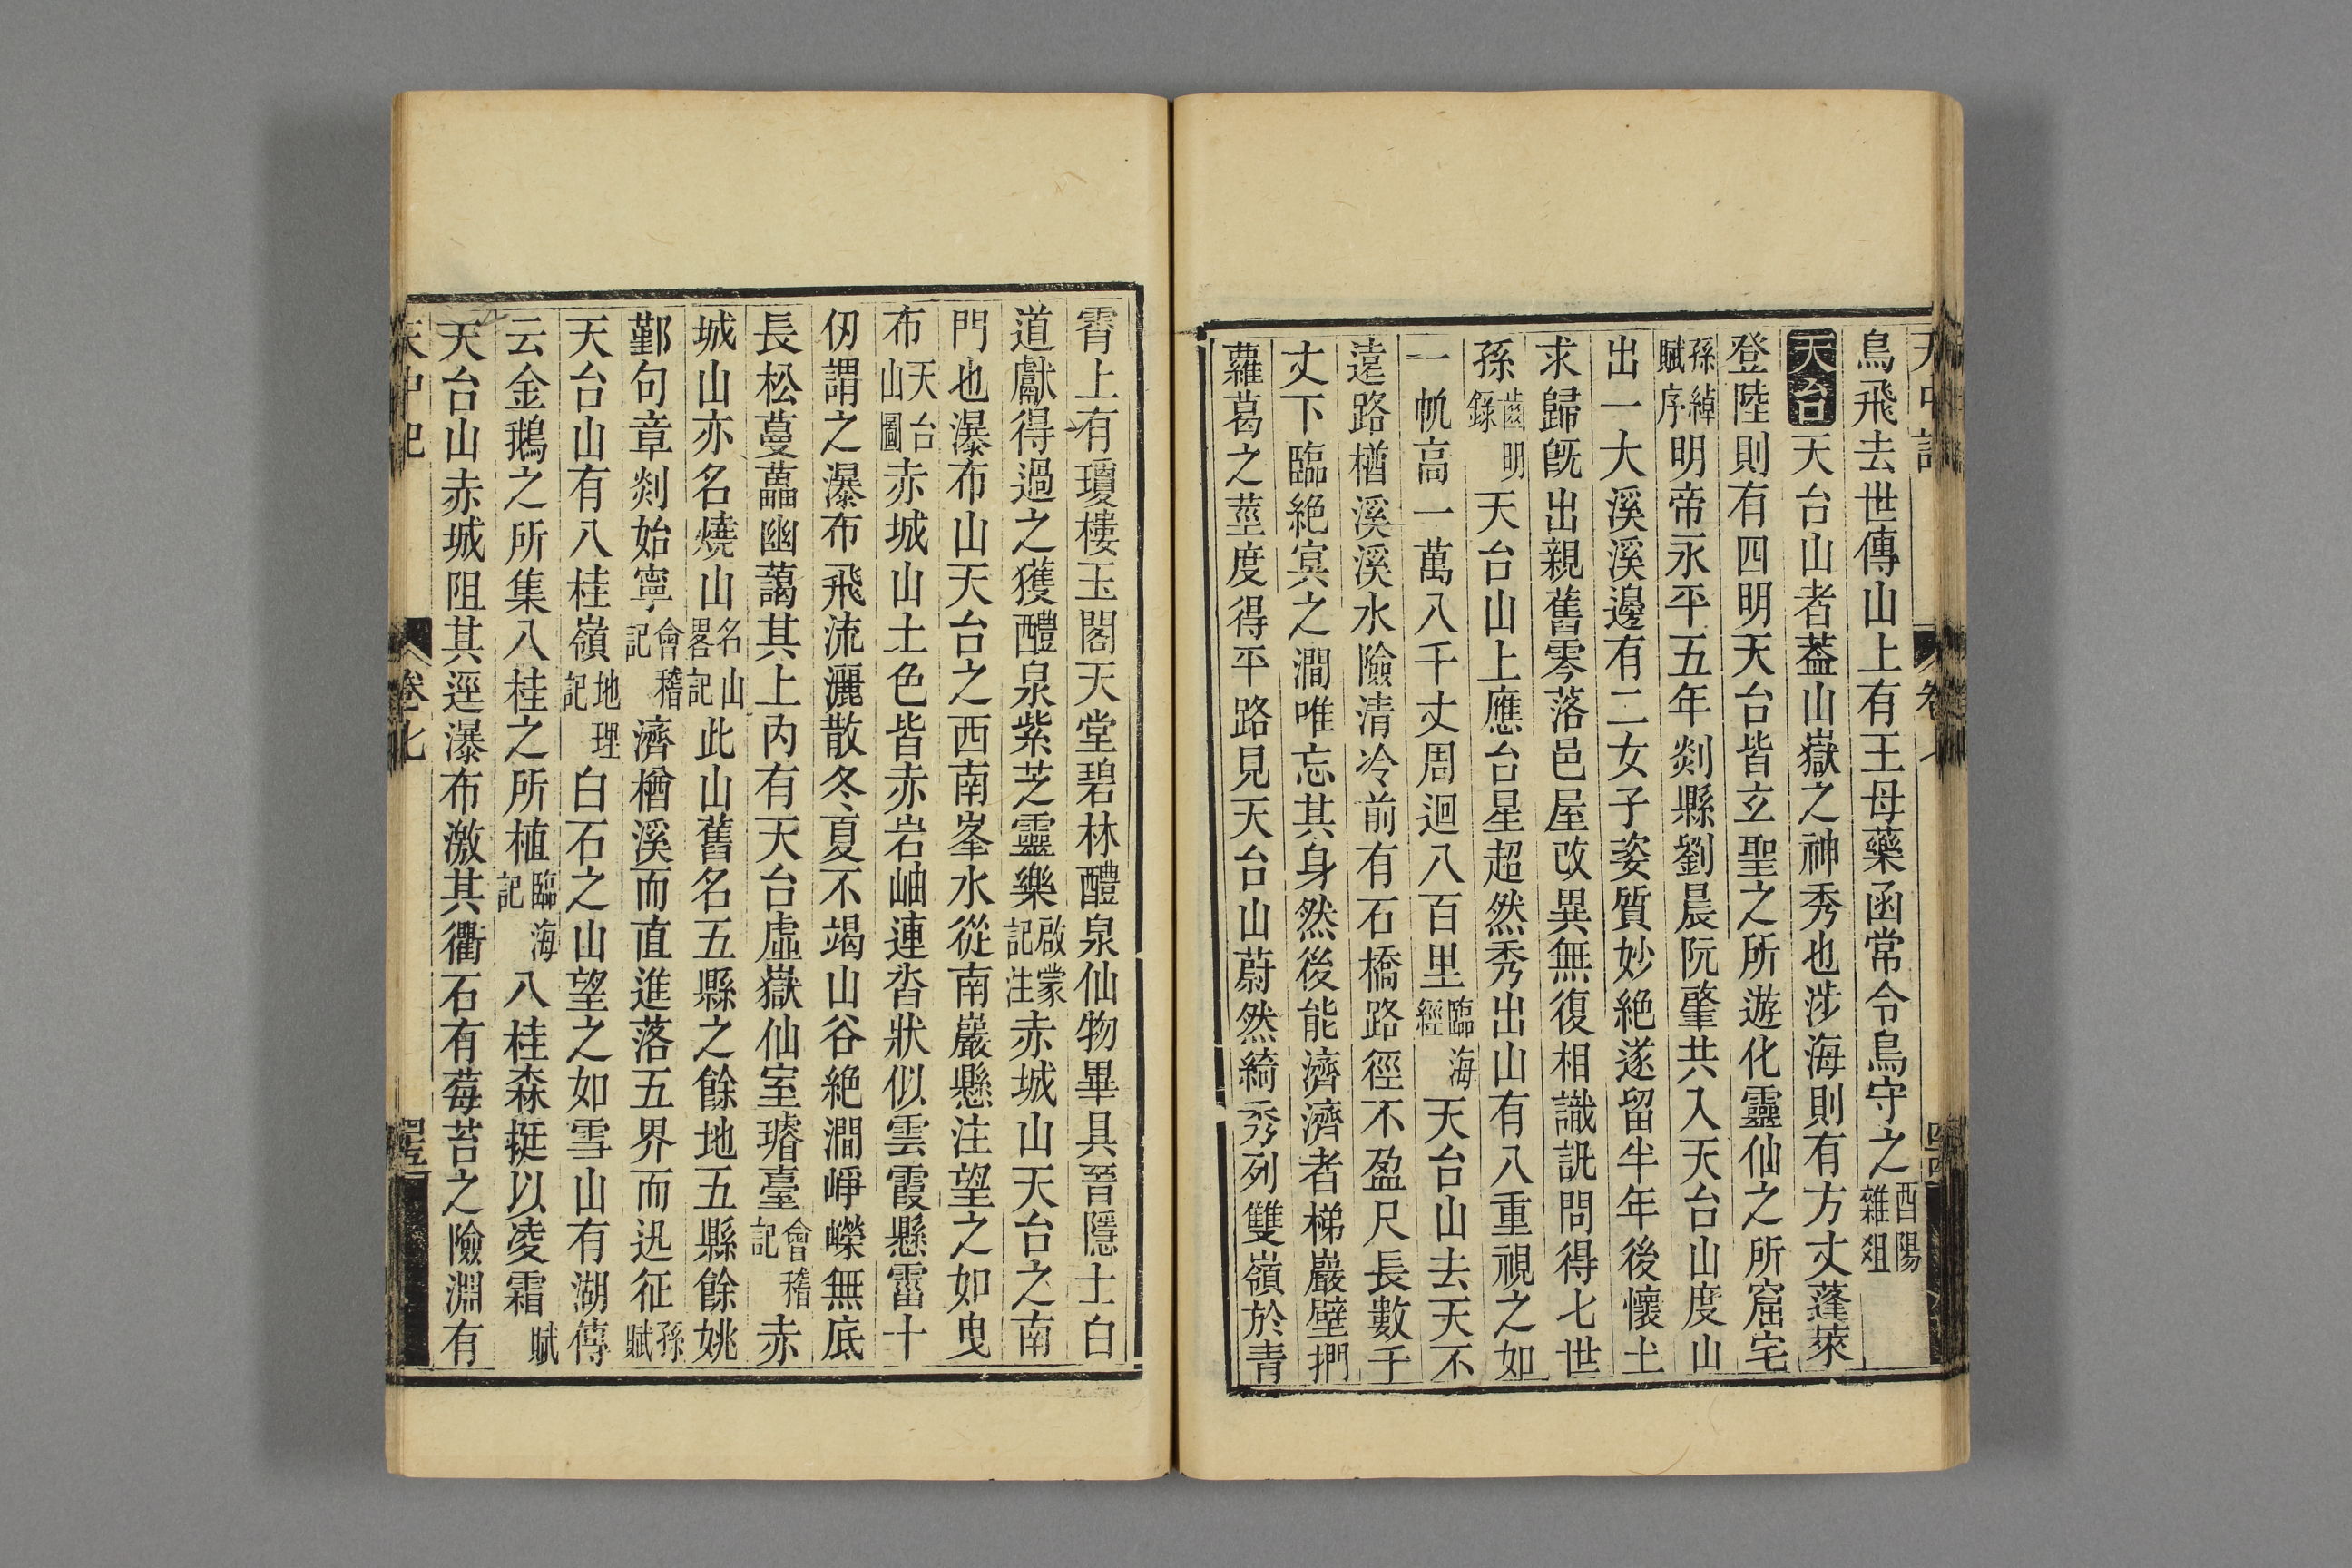 鳥飛去世傳山上有王母藥函常令鳥守之酉陽雜俎
天台天台山者葢山嶽之神秀也涉海則有方丈蓬萊
登陸則有四明天台皆玄聖之所遊化靈仙之所窟宅
孫綽賦序明帝永平五年剡縣劉晨阮肇共入天台山度山
出一大溪溪邊有二女子姿質妙絶遂留半年後懷土
求歸旣出親舊零落邑屋改異無復相識訊問得七世
孫齒明錄天台山上應台星超然秀出山有八重視之如
一帆高一萬八千丈周迴八百里臨海經天台山去天不
遠路楢溪溪水險清冷前有石橋路徑不盈尺長數千
丈下臨絶㝠之澗唯忘其身然後能濟濟者梯巖壁捫
蘿葛之莖度得平路見天台山蔚然綺秀列雙嶺於青
霄上有瓊樓玉閣天堂碧林醴泉仙物畢具晉隱士白
道猷得過之獲醴泉紫芝靈樂啟蒙記注赤城山天台之南
門也瀑布山天台之西南峯水從南巖懸注望之如曳
布天台山圖赤城山土色皆赤岩岫連沓狀似雲霞懸霤十
仞謂之瀑布飛流灑散冬夏不竭山谷絶澗崢嶸無底
長松蔓藟幽藹其上内有天台虛嶽仙室璿臺會稽記赤
城山亦名燒山名山畧記此山舊名五縣之餘地五縣餘姚
鄞句章剡始寧會稽記濟楢溪而直進落五界而迅征孫賦
天台山有八桂嶺地理記白石之山望之如雪山有湖傳
云金鵝之所集八桂之所植臨海記八桂森挺以凌霜賦
天台山赤城阻其逕瀑布激其衢石有莓苔之險淵有
天中記
卷七